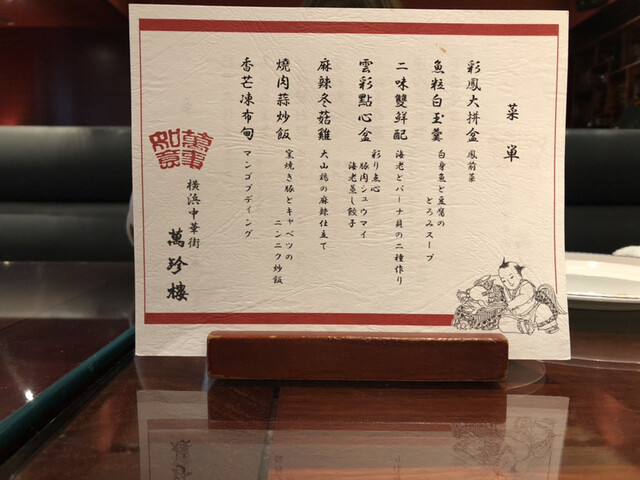 菜単
彩鳳大拼盆 鳳前菜
魚粒白玉羹 白身魚と豆腐の
とろみスープ
二味雙鮮配 海老とバーナ貝の二種作り
雲彩點心盆 彩り点心
豚肉シュウマイ
海老蒸し餃子
麻辣冬菇雞 大山鶏の麻辣仕立て
燒肉蒜炒飯 窯焼き豚とキャベツの
ニンニク炒飯
香芒凍布甸 マンゴプディング
萬事如意
横浜中華街
萬珍樓